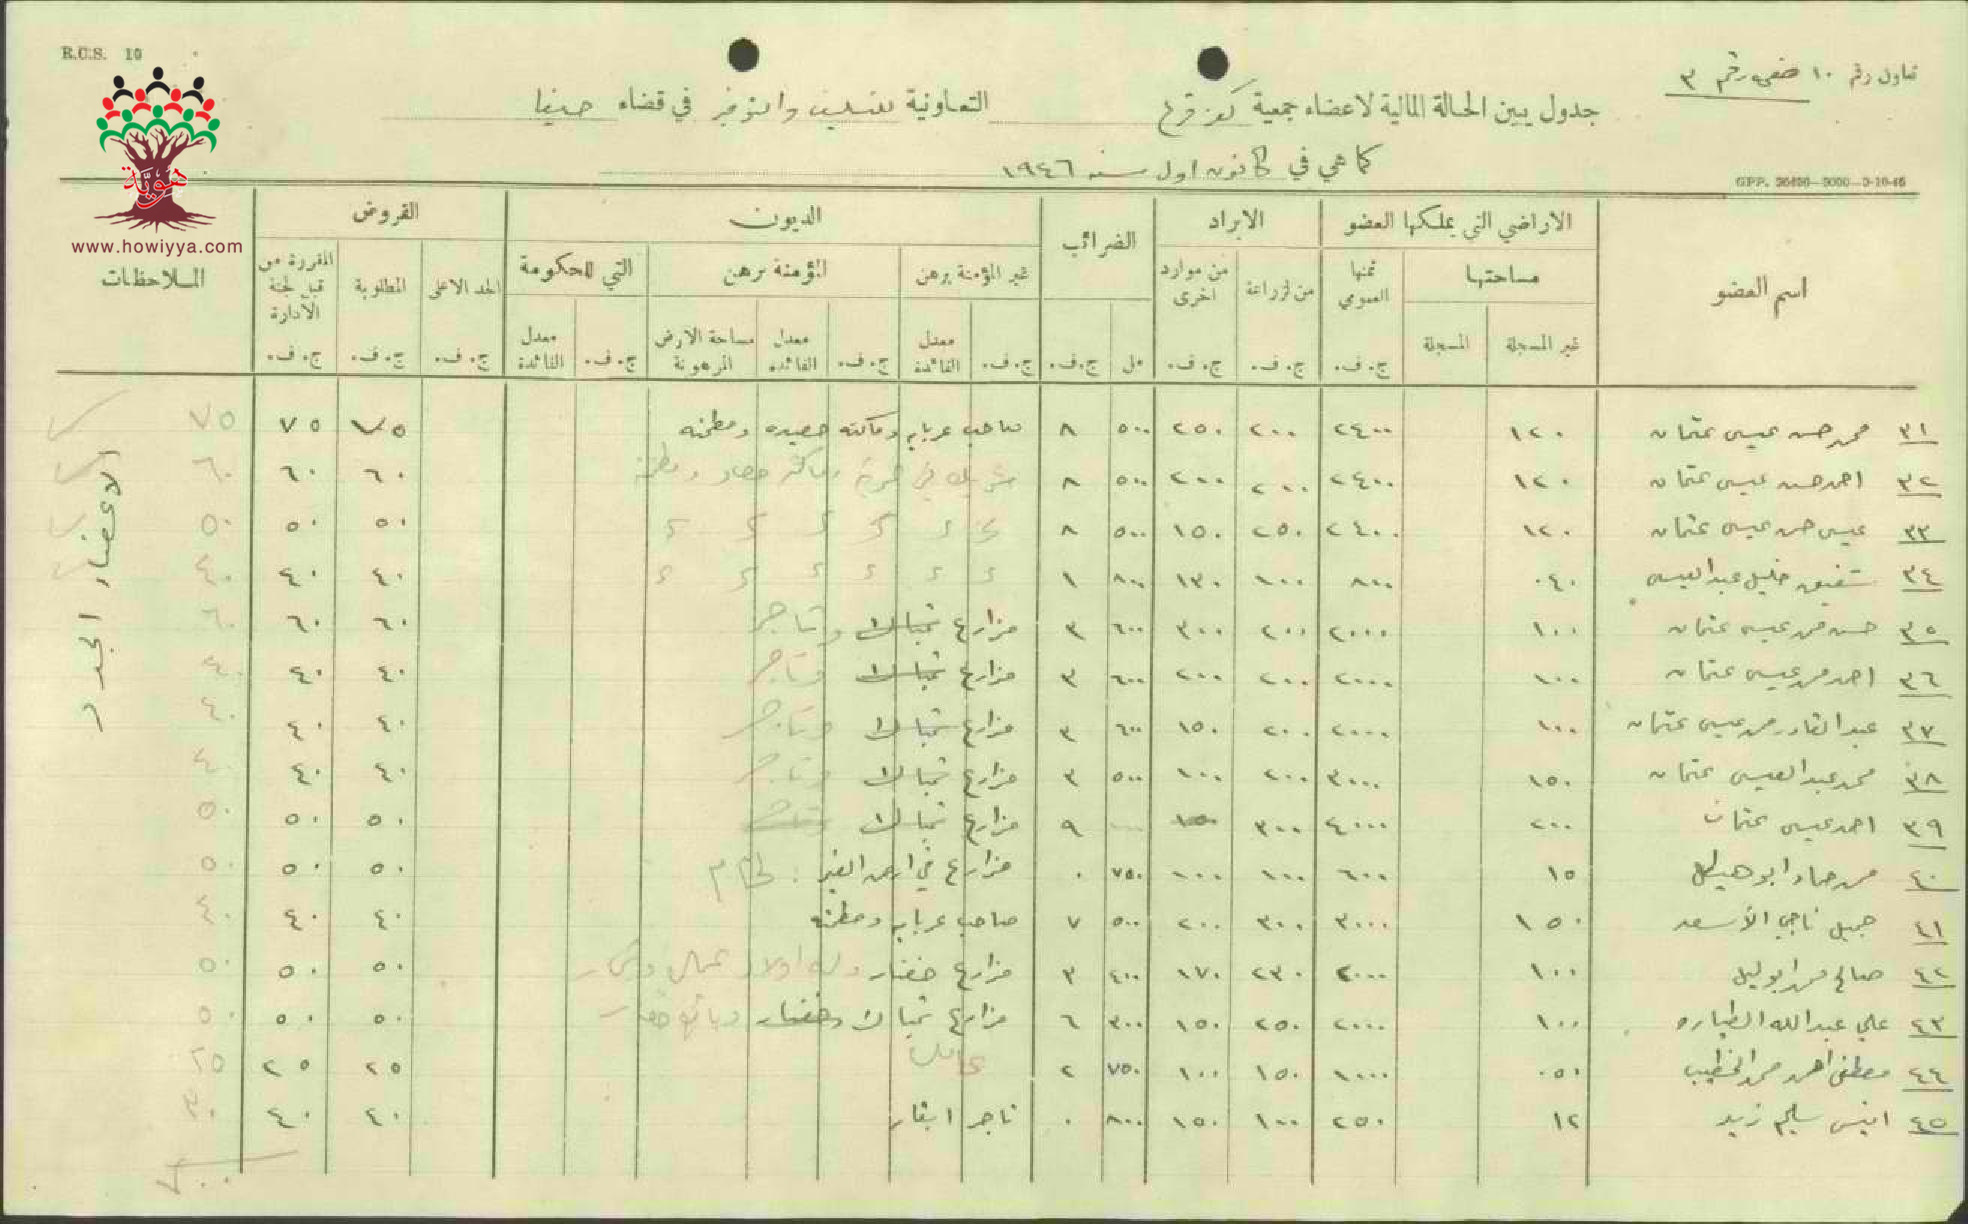 R.C.S. 10
تعاون رقم ١٠ صفحه رقم ٣
جدول يبين الحالة المالية لاعضاء جمعية كفر قرع التعاونية للتسليف والتوفير في قضاء حيفا
كما هي في كانون اول سنه ١٩٤٦
GPP. 26496—3000—3-10-45
هوية
www.howiyya.com
اسم العضو الاراضي التي يملكها العضو الايراد الضرائب الديون القروض الملاحظات
مساحتها ثمنها العمومي من الزراعة من موارد اخرى غير المؤمنة برهن المؤمنة برهن التي للحكومة الحد الاعلى المطلوبة المقررة من قبل لجنة الادارة
غير المسجلة المسجلة ج. ف. ج. ف. ج. ف. مل ج. ف. ج. ف. معدل الفائدة ج. ف. معدل الفائدة مساحة الارض المرهونة ج. ف. معدل الفائدة ج. ف. ج. ف. ج. ف.
٣١ محمد حسن عيسى عثمان ١٢٠ ٢٤٠٠ ٢٠٠ ٢٥٠ ٥٠٠ ٨ صاحب عربايه وماكنه حصيده ومطحنه ٧٥ ٧٥ ٧٥
٣٢ احمد حسن عيسى عثمان ١٢٠ ٢٤٠٠ ٢٠٠ ٢٠٠ ٥٠٠ ٨ شريك في وماكنة حصاد ومطحنة ٦٠ ٦٠ ٦٠
٣٣ عيسى حسن عيسى عثمان ١٢٠ ٢٤٠٠ ٢٥٠ ١٥٠ ٥٠٠ ٨ ٥٠ ٥٠ ٥٠
٣٤ شفيق خليل عبد العيسى ٠٤٠ ٨٠٠ ١٠٠ ١٣٠ ٨٠٠ ١ ٤٠ ٤٠ ٤٠
٣٥ حسن محمد عيسى عثمان ١٠٠ ٢٠٠٠ ٢٠٠ ٣٠٠ ٦٠٠ ٣ مزارع تمباك وتاجر ٦٠ ٦٠ ٦٠
٣٦ احمد محمد عيسى عثمان ١٠٠ ٢٠٠٠ ٢٠٠ ٢٠٠ ٦٠٠ ٣ مزارع تمباك وتاجر ٤٠ ٤٠ ٤٠
٣٧ عبد القادر محمد عيسى عثمان ١٠٠ ٢٠٠٠ ٢٠٠ ١٥٠ ٦٠٠ ٣ مزارع تمباك وتاجر ٤٠ ٤٠ ٤٠
٣٨ محمد عبد العيسى عثمان ١٥٠ ٣٠٠٠ ٢٠٠ ١٠٠ ٥٠٠ ٣ مزارع تمباك وتاجر ٤٠ ٤٠ ٤٠
٣٩ احمد عيسى عثمان ٢٠٠ ٤٠٠٠ ٣٠٠ ١٥٠ ٩ مزارع تمباك وتاجر ٥٠ ٥٠ ٥٠
٤٠ محمد حماد ابو هيكل ١٥ ٦٠٠ ١٠٠ ١٠٠ ٧٥٠ ٠ مزارع في ارض الغير : لحام ٥٠ ٥٠ ٥٠
٤١ جميل ناجي الأسعد ١٥٠ ٣٠٠٠ ٣٠٠ ٢٠٠ ٥٠٠ ٧ صاحب عربايه ومطحنه ٤٠ ٤٠ ٤٠
٤٢ صالح محمد ابو ليل ١٠٠ ٢٠٠٠ ٢٣٠ ١٧٠ ٤٠٠ ٣ مزارع خضار وله اولاد عمال ٥٠ ٥٠ ٥٠
٤٣ علي عبد الله الطياره ١٠٠ ٢٠٠٠ ٢٥٠ ١٥٠ ٣٠٠ ٦ مزارع تمباك وخضار وبائع خضار ٥٠ ٥٠ ٥٠
٤٤ مصطفى احمد محمد الخطيب ٠٥٠ ١٠٠٠ ١٥٠ ١٠٠ ٧٥٠ ٢ عامل ٢٥ ٢٥ ٢٥
٤٥ انيس سليم زيد ١٢ ٢٥٠ ١٠٠ ١٥٠ ٨٠٠ ٠ تاجر ابقار ٤٠ ٤٠
الاعضاء الجدد
٧٠٠